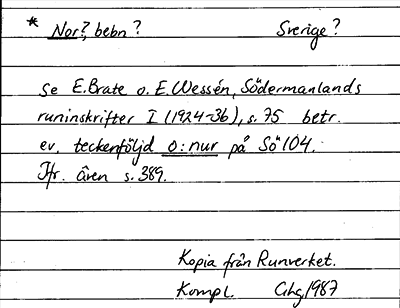 * Nor?, bebn? Sverige?
Se E. Brate o. E. Wessén, Södermanlands
runinskrifter I (1924-36), s. 75 betr.
ev. teckenföljd o:nur på Sö 104.
Jfr. även s. 389.
Kopia från Runverket.
Kompl. 1987